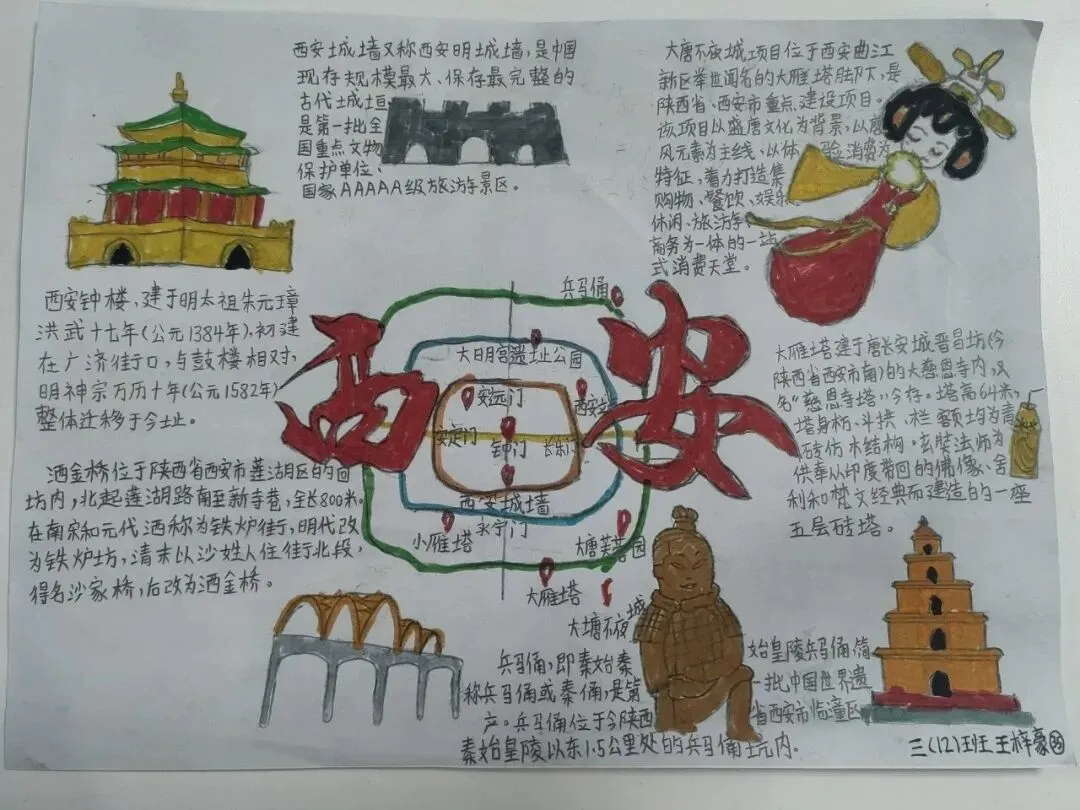 西安城墙又称西安明城墙，是中国
现存规模最大、保存最完整的
古代城垣
是第一批全
国重点文物
保护单位、
国家AAAAA级旅游景区。
大唐不夜城项目位于西安曲江
新区举世闻名的大雁塔脚下，是
陕西省、西安市重点建设项目。
该项目以盛唐文化为背景，以唐
风元素为主线、以体验消费为
特征，着力打造集
购物、餐饮、娱乐
休闲、旅游
商务为一体的一站
式消费天堂。
西安钟楼，建于明太祖朱元璋
洪武十七年(公元1384年)，初建
在广济街口，与鼓楼相对，
明神宗万历十年(公元1582年)
整体迁移于今址。
洒金桥位于陕西省西安市莲湖区的回
坊内，北起莲湖路南至新寺巷，全长800米。
在南宋和元代洒称为铁炉街，明代改
为铁炉坊，清末以沙姓人住街北段，
得名沙家桥，后改为洒金桥。
西安
兵马俑
大明宫遗址公园
安远门
西安
安定门
钟门
长乐门
西安城墙
永宁门
小雁塔
大唐芙 园
大雁塔
大塘不夜城
大雁塔建于唐长安城晋昌坊(今
陕西省西安市南)的大慈恩寺内，又
名“慈恩寺塔”今存。塔高64米，
塔身枋、斗拱、栏额均为青
砖仿木结构。玄奘法师为
供奉从印度带回的佛像、舍
利和梵文经典而建造的一座
五层砖塔。
兵马俑，即秦始秦 始皇陵兵马俑，简
称兵马俑或秦俑，是第 一批中国世界遗
产。兵马俑位于今陕西 省西安市临潼区
秦始皇陵以东1.5公里处的兵马俑坑内。
三(12)班王梓豪